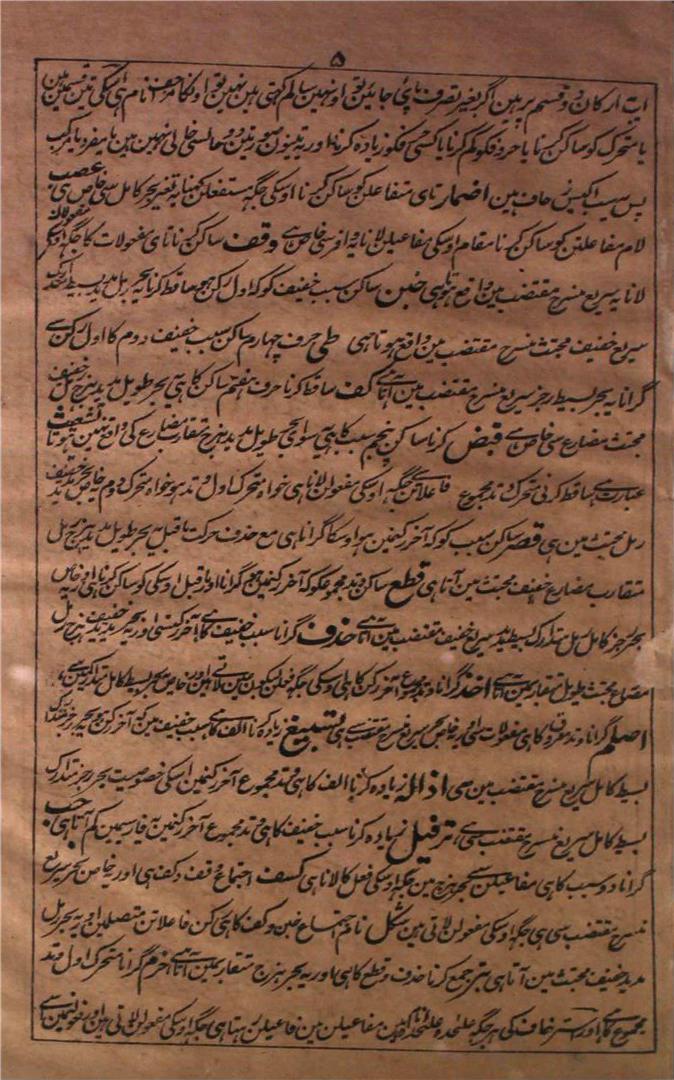 ۵
یہ ارکان دو قسم پر ہین اگر بغیر تصرف پائ جائین تو اونہین سالم کہتی ہین نہین تو اونکا مزاحف نام ہی اسکی تین قسمین ہین
یا متحرک کو ساکن کرنا یا حروفکو کم کرنا یا کسی حرفکو زیادہ کرنا اور یہ تینون صورتین دو حالسی خالی نہین ہین یا مفرد یا مرکب
پس سب اکیس زحاف ہین اضمار تای متفاعلن کو ساکن کرنا اوسکی جگہ مستفعلن کہنا یہ تغیر بحر کامل سی خاص ہی عصب
لام مفاعلتن کو ساکن کرنا مقام اوسکی مفاعیلن لانا یہ وافر سی خاص ہے وقف ساکن کرنا تای مفعولات کا جگہ اوسکی مفعولان
لانا یہ سریع منسرح مقتضب مین واقع ہوتا ہی خبن ساکن سبب خفیف کو کہ اول رکن ہو ساقط کرنا یہ بحر رمل مدید بسیط متدارک
سریع خفیف مجتث منسرح مقتضب مین واقع ہوتا ہی طی حرف چہارم ساکن سبب خفیف دوم کا اول رکن سے
گرانا یہ بحر بسیط رجز سریع منسرح مقتضب مین آتا ہے کف ساقط کرنا حرف ہفتم ساکن کا ہی یہ بحر طویل مدید ہزج رمل خفیف
مجتث مضارع سی خاص ہے قبض کرنا ساکن پنجم سبب کا ہی یہ سوای بحر طویل مدید ہزج متقارب مضارع کی واقع نہین ہوتا تشعیث
عبارت ہے ساقط کرنی متحرک وتد مجموع فاعلاتن سے جگہ اوسکی مفعولن لانا ہی خواہ متحرک اول وتد ہو خواہ متحرک دوم یہ خاص بحر خفیف مدید
رمل مجتث مین ہی قصر ساکن سبب کو کہ آخر رکنمین ہو اوسکا گرانا ہی مع حذف حرکت ماقبل یہ بحر طویل مدید ہزج رمل
متقارب مضارع خفیف مجتث مین آتا ہی قطع ساکن وتد مجموع کو کہ آخر رکنمین ہو گرانا اور ماقبل اوسکی کو ساکن کرنا ہی اور یہ خاص
بحر رجز کامل رمل متدارک بسیط مدید سریع خفیف مقتضب مین آتا ہے حذف گرانا سبب خفیف کا ہی آخر رکنسی اور یہ بحر مدید خفیف ہزج رمل
مضارع مجتث طویل متقارب مین آتا ہے احذ گرانا وتد مجموع آخر رکن کا ہی اوسکی جگہ فعلن بسکون عین لاتے ہین اور یہ خاص بحر بسیط کامل متدارک مین ہے
اصلم گرانا وتد مفروق کا ہی مفعولات سی اور یہ خاص بحر سریع منسرح مقتضب سے ہی تسبیغ زیادہ کرنا الف کا ہی سبب خفیف مین کہ آخر رکن ہو یہ بحر رجز متدارک
بسیط کامل سریع منسرح مقتضب مین ہی اذالہ زیادہ کرنا الف کا ہی وتد مجموع آخر رکنمین اسکی خصوصیت بحر رجز متدارک
بسیط کامل سریع منسرح مقتضب سی ہے ترفیل زیادہ کرنا سبب خفیف کا ہی وتد مجموع آخر رکنمین یہ فارسیمین کم آتا ہی جب
گرانا دو سبب کا ہی مفاعیلن سے بحر ہزج مین جگہ اوسکی فعل کا لانا ہی کسف اجتماع وقف و کف ہی اور یہ خاص بحر سریع
منسرح مقتضب سی ہی جگہ اوسکی مفعولن لاتی ہین شکل نام اجتماع خبن و کف کا ہی رکن فاعلاتن متصلمین اور یہ بحر رمل
مدید خفیف مجتث مین آتا ہی بتر جمع کرنا حذف و قطع کا ہی اور یہ بحر ہزج متقارب مین آتا ہے اخرم گرانا متحرک اول وتد
مجموع کا ہی اور اس زحاف کی ہر جگہ علٰحدہ علٰحدہ نام ہین مفاعیلن مین فاعیلن رہتا ہی جگہ اوسکی مفعولن لاتی ہین اور فعولنمین سے